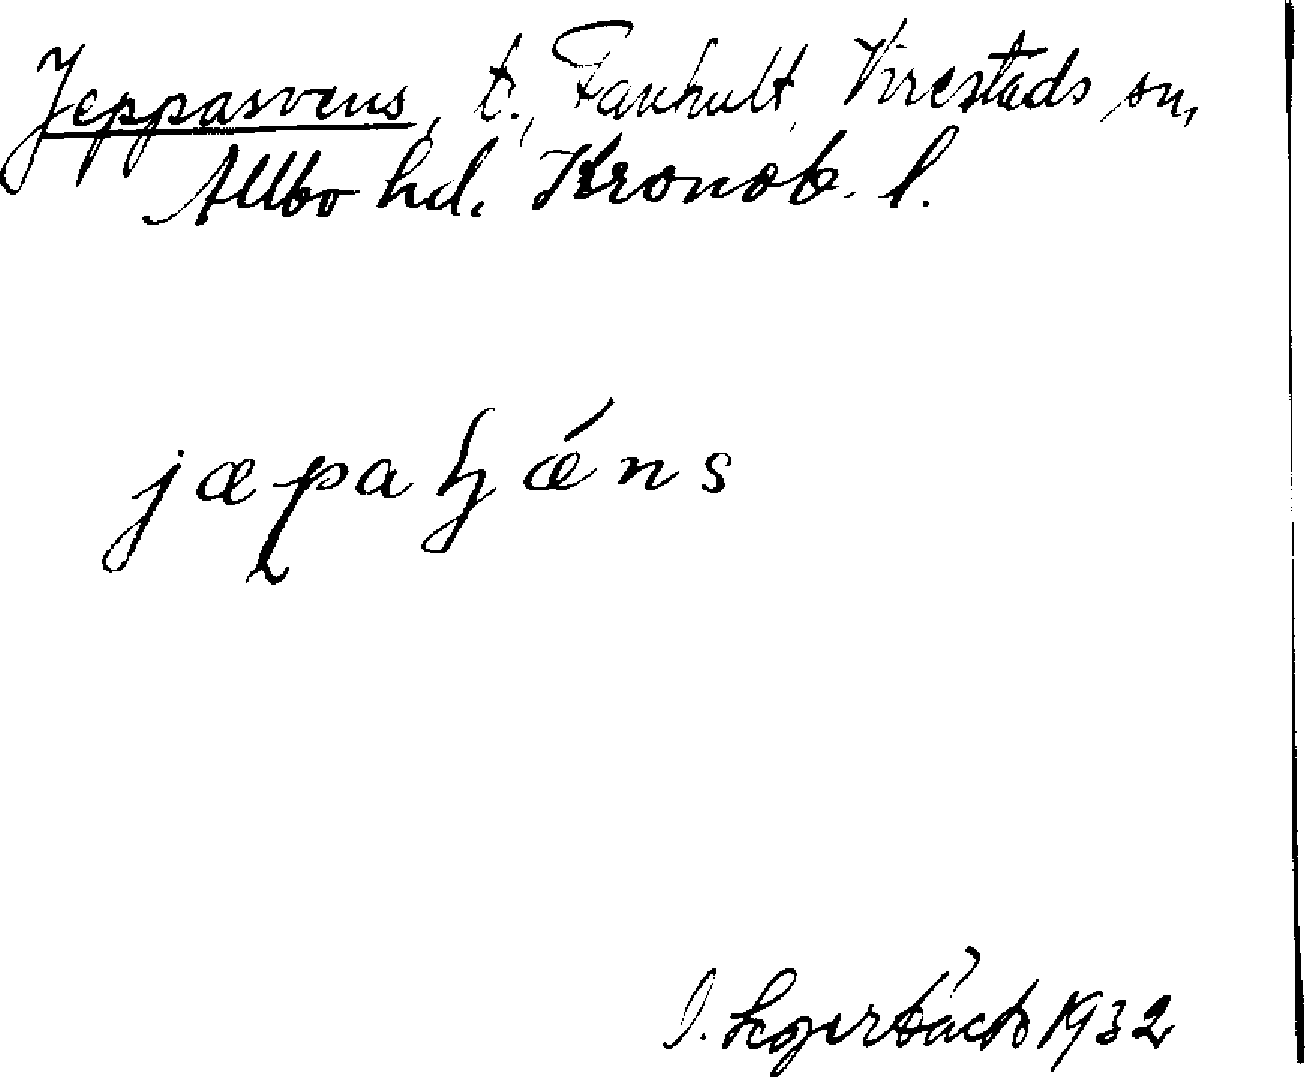 Jeppasvens, t., Fanhult, Virestads sn,
Allbo hd. Kronob. l.
jæpaɧǽns
I. 1932